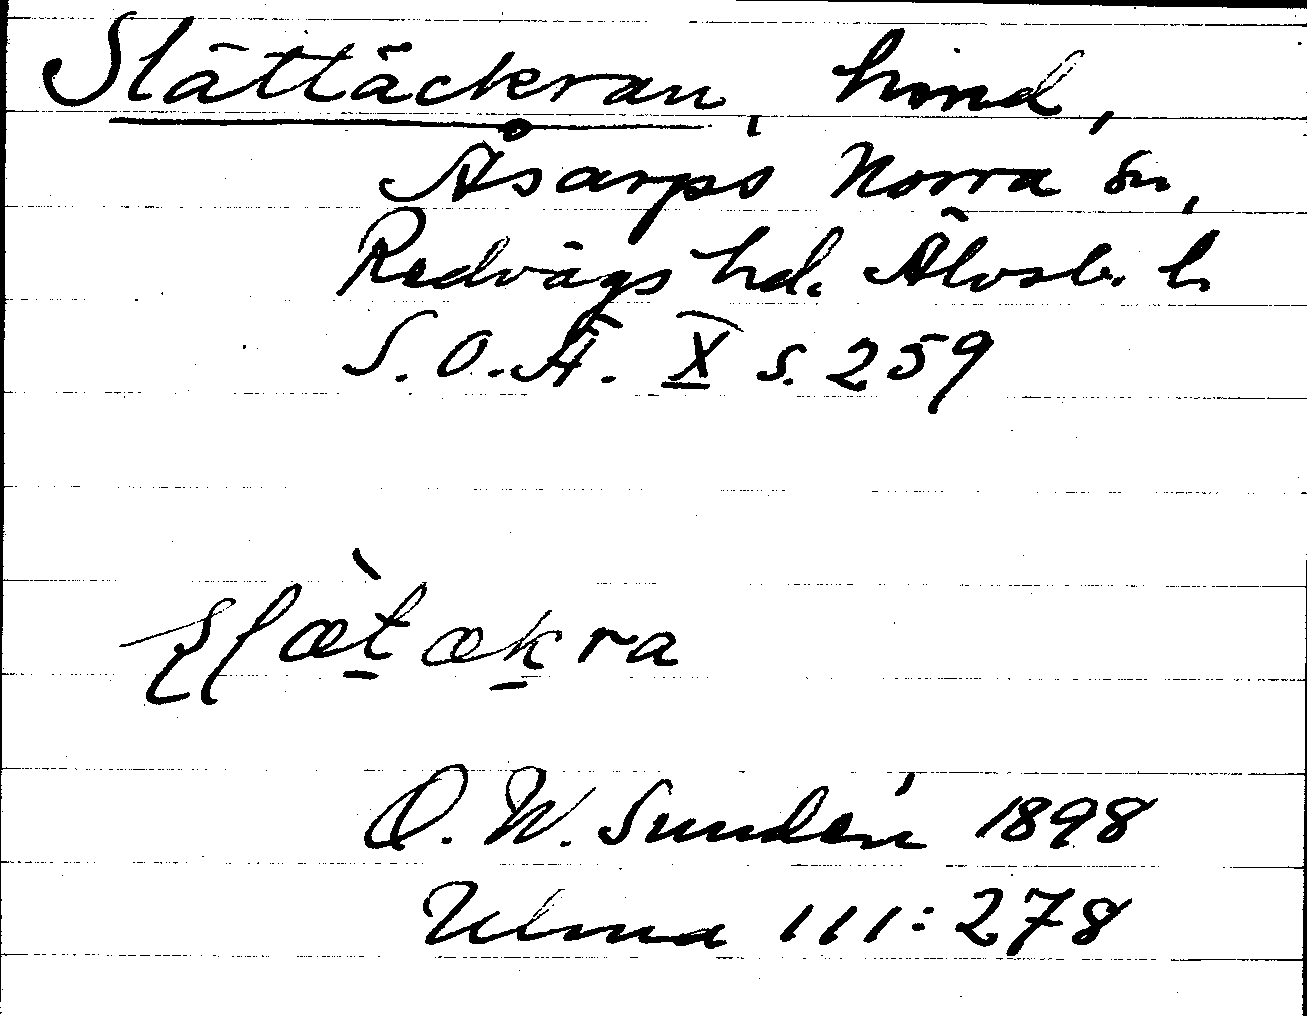 Slättäckran, hmd,
Åsarps Norra sn,
Redvägs hd. Älvsb. l.
S.O.Ä. X s. 259
O. W. Sundén 1898
Ulma 111:278